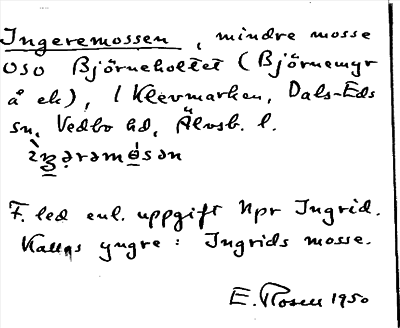 Ingeremossen, mindre mosse
OSO Björneholtet (Björnemyr
å ek), i Klevmarken, Dals-Eds
sn, Vedbo hd, Älvsb. l.
F. led enl. uppgift Npr Ingrid.
Kallas yngre: Ingrids mosse.
E. Rosell 1950